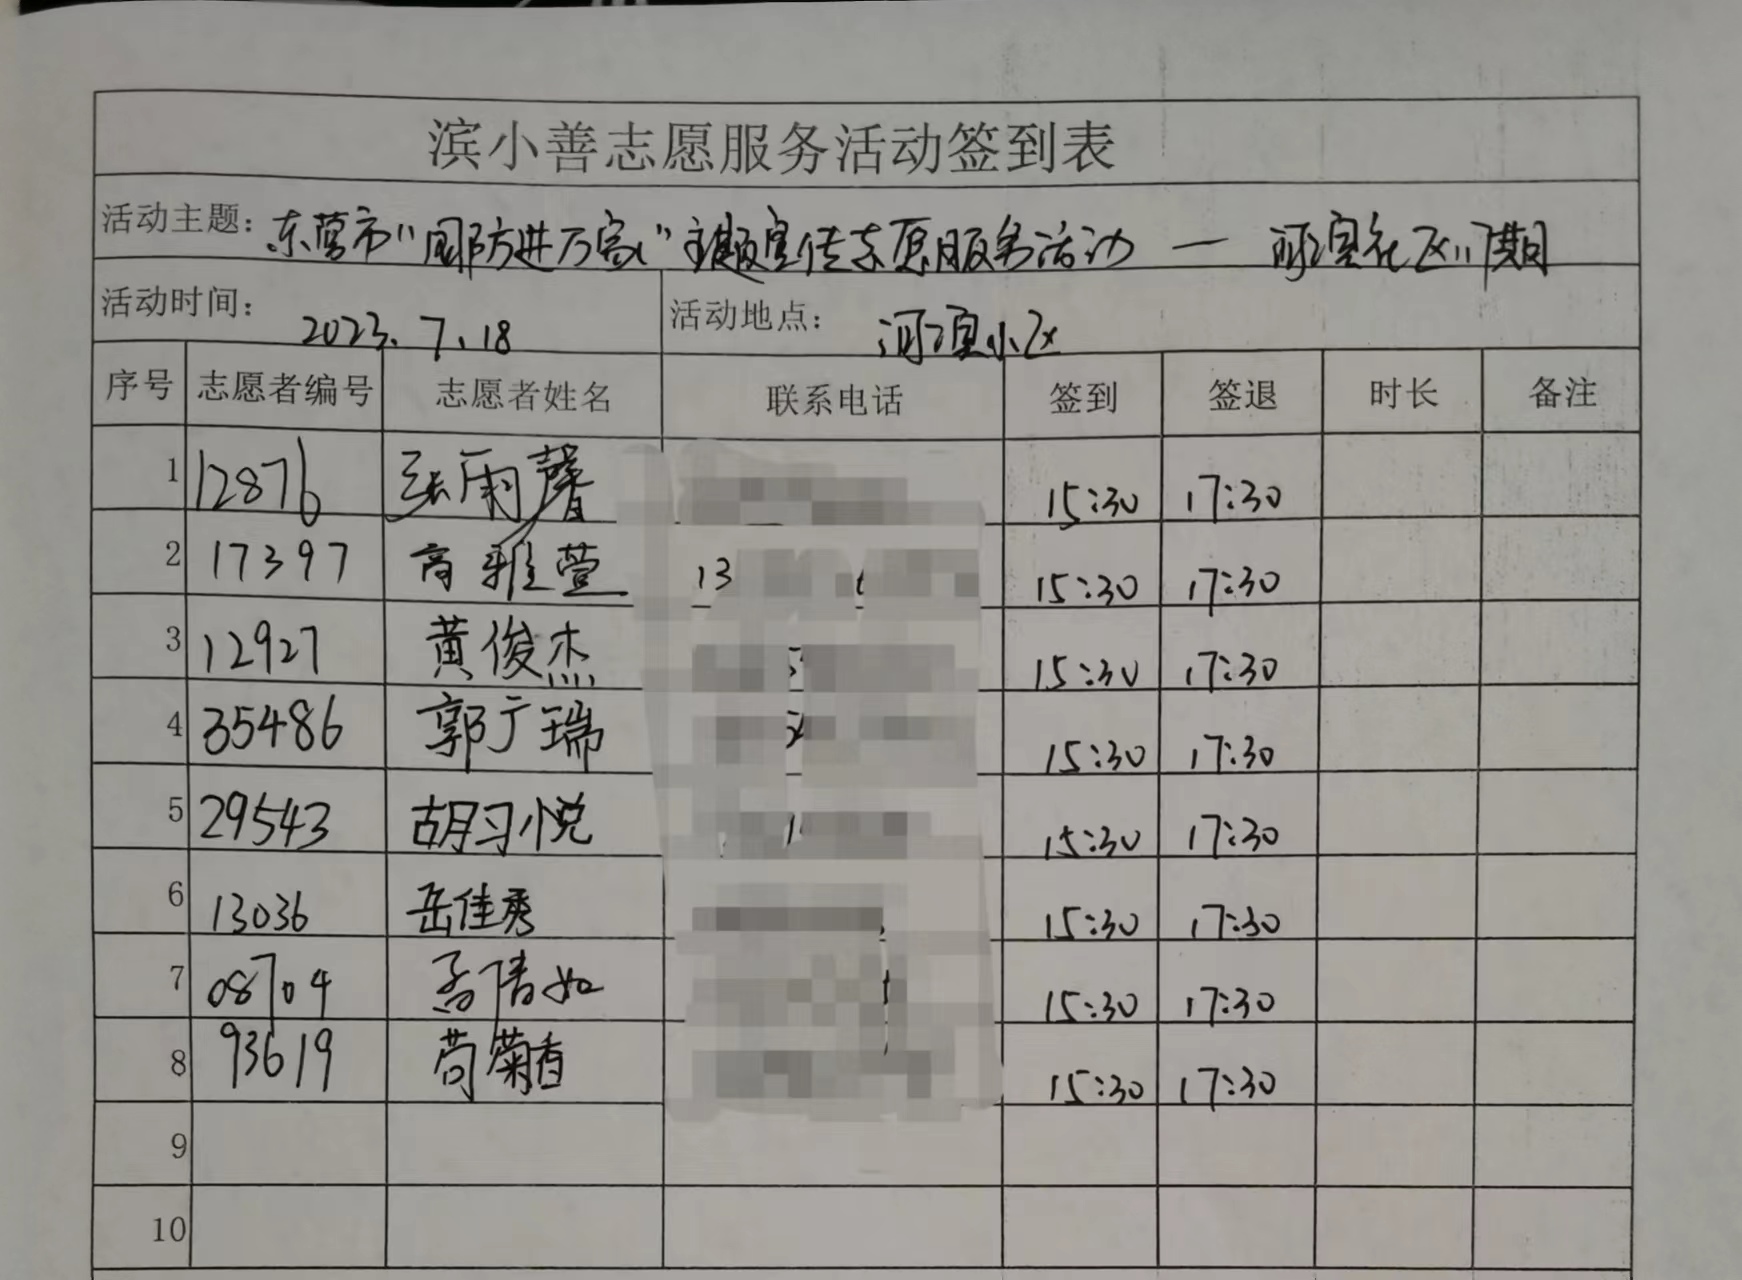 滨小善志愿服务活动签到表
活动主题：东营市“国防进万家”主题宣传志愿服务活动 — 河滨社区117期
活动时间： 2023.7.18 活动地点： 河滨小区
序号 志愿者编号 志愿者姓名 联系电话 签到 签退 时长 备注
1 12876 张雨馨 15:30 17:30
2 17397 高雅萱 13 15:30 17:30
3 12927 黄俊杰 15:30 17:30
4 35486 郭广瑞 15:30 17:30
5 29543 胡习悦 15:30 17:30
6 13036 岳佳秀 15:30 17:30
7 08704 孟倩如 15:30 17:30
8 93619 苟菊香 15:30 17:30
9
10